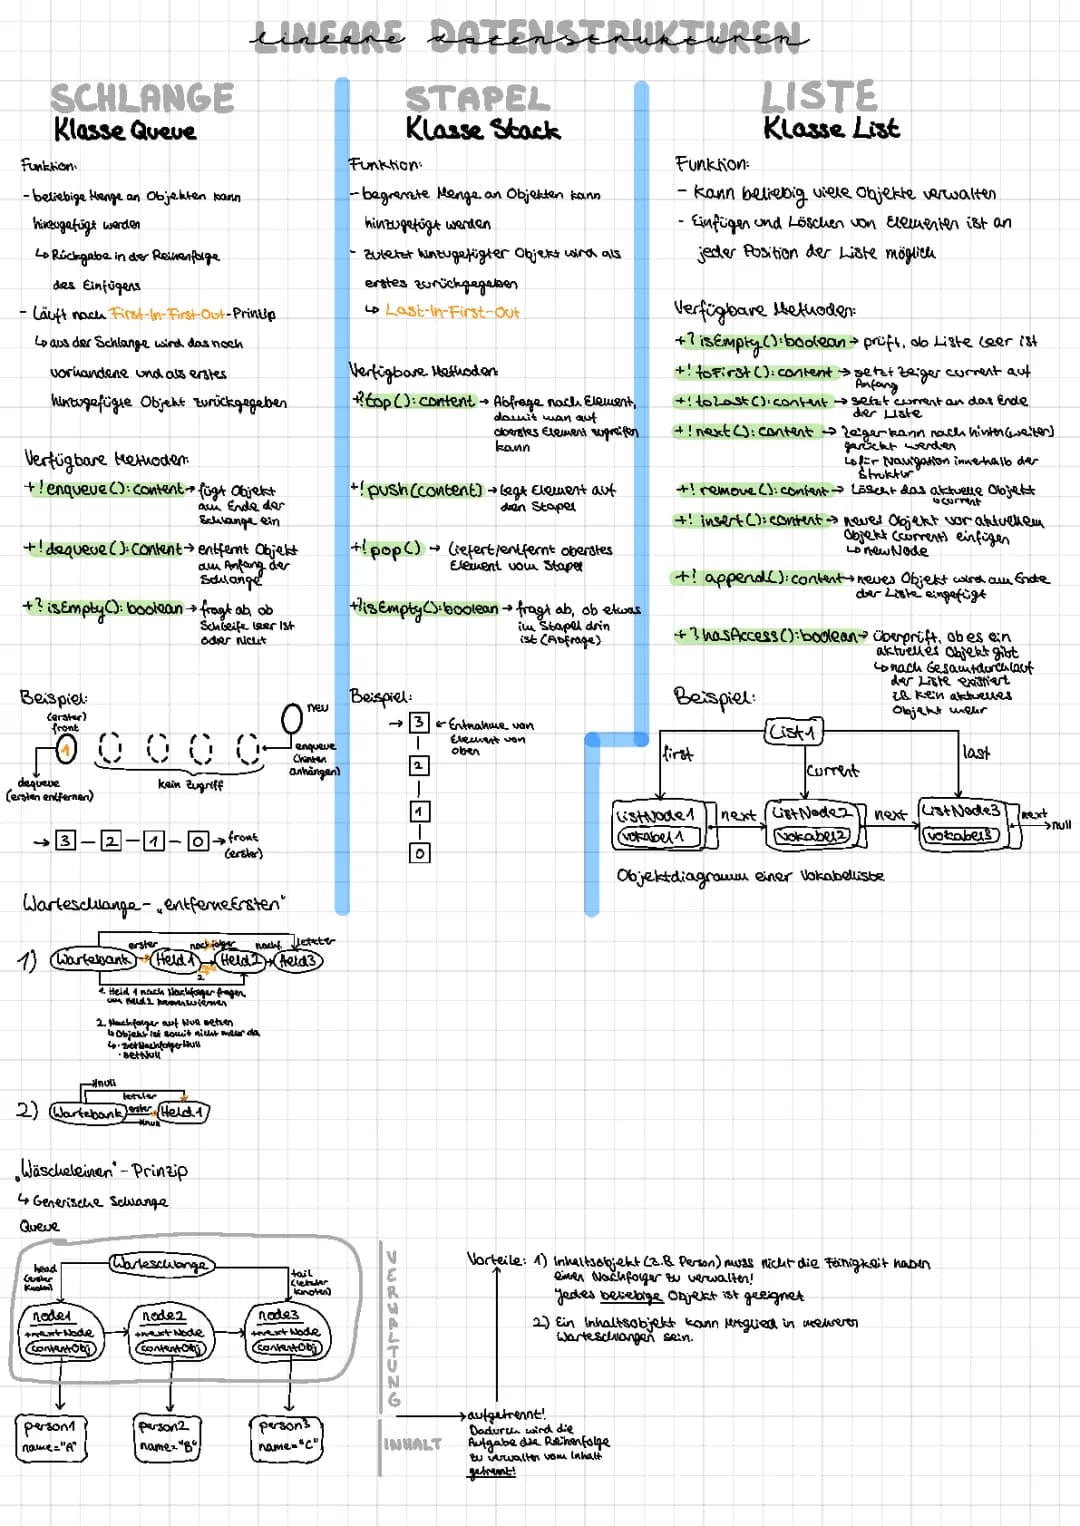 LINEARE DATENSTRUKTUREN
SCHLANGE
Klasse Queue
Funktion:
- beliebige Menge an Objekten kann
hinzugefügt werden
↳ Rückgabe in der Reihenfolge
des Einfügens
- Läuft nach First-In-First-Out-Prinzip
↳ aus der Schlange wird das noch
vorhandene und als erstes
hinzugefügte Objekt zurückgegeben
Verfügbare Methoden:
+! enqueue(): content → fügt Objekt
am Ende der
Schlange ein
+! dequeue(): content → entfernt Objekt
am Anfang der
Schlange
+? isEmpty(): boolean → fragt ab, ob
Schleife leer ist
oder nicht
Beispiel:
(erster)
front
1
neu
enqueue
(hinten
anhängen)
dequeue
(ersten entfernen)
kein Zugriff
→ 3 - 2 - 1 - 0 → front
(erster)
Warteschlange - „entferneErsten"
1) Wartebank erster Held1 nachfolger Held2 nachf. Held3 letzter
2
1. Held 1 nach Nachfolger fragen,
um Held 2
2. Nachfolger auf Null setzen
↳ Objekt ist somit nicht mehr da
↳ · setNachfolgerNull
· setNull
2) Wartebank erster Held1
null
letzter
null
„Wäscheleinen"-Prinzip
↳ Generische Schlange
Queue
Warteschlange
head
(erster
Knoten)
tail
(letzter
Knoten)
node1
+nextNode
contentObj
node2
+nextNode
contentObj
node3
+nextNode
contentObj
person1
name="A"
person2
name="B"
person3
name="C"
STAPEL
Klasse Stack
Funktion:
- begrenzte Menge an Objekten kann
hinzugefügt werden
- zuletzt hinzugefügter Objekt wird als
erstes zurückgegeben
↳ Last-In-First-Out
Verfügbare Methoden:
+? top(): content → Abfrage nach Element,
damit man auf
oberstes Element zugreifen
kann
+! push(content) → legt Element auf
den Stapel
+! pop() → liefert/entfernt oberstes
Element vom Stapel
+? isEmpty(): boolean → fragt ab, ob etwas
im Stapel drin
ist (Abfrage)
Beispiel:
→ 3 ← Entnahme von
Element von
oben
2
1
0
LISTE
Klasse List
Funktion:
- Kann beliebig viele Objekte verwalten
- Einfügen und Löschen von Elementen ist an
jeder Position der Liste möglich
Verfügbare Methoden:
+? isEmpty(): boolean → prüft, ob Liste leer ist
+! toFirst(): content → setzt Zeiger current auf
Anfang
+! toLast(): content → setzt current an das Ende
der Liste
+! next(): content → Zeiger kann nach hinten (weiter)
gerückt werden
↳ für Navigation innerhalb der
Struktur
+! remove(): content → Löscht das aktuelle Objekt
↳ current
+! insert(): content → neues Objekt vor aktuellem
Objekt (current) einfügen
↳ newNode
+! append(): content → neues Objekt wird am Ende
der Liste eingefügt
+? hasAccess(): boolean → überprüft, ob es ein
aktuelles Objekt gibt
↳ nach Gesamtdurchlauf
der Liste existiert
z.B. kein aktuelles
Objekt mehr
Beispiel:
List1
first
current
last
ListNode1
Vokabel1
next
ListNode2
Vokabel2
next
ListNode3
Vokabel3
next
→ null
Objektdiagramm einer Vokabelliste
VERWALTUNG
INHALT
Vorteile: 1) Inhaltsobjekt (z.B. Person) muss nicht die Fähigkeit haben
einen Nachfolger zu verwalten!
Jedes beliebige Objekt ist geeignet
2) Ein Inhaltsobjekt kann Mitglied in mehreren
Warteschlangen sein.
aufgetrennt!
Dadurch wird die
Aufgabe die Reihenfolge
zu verwalten vom Inhalt
getrennt!